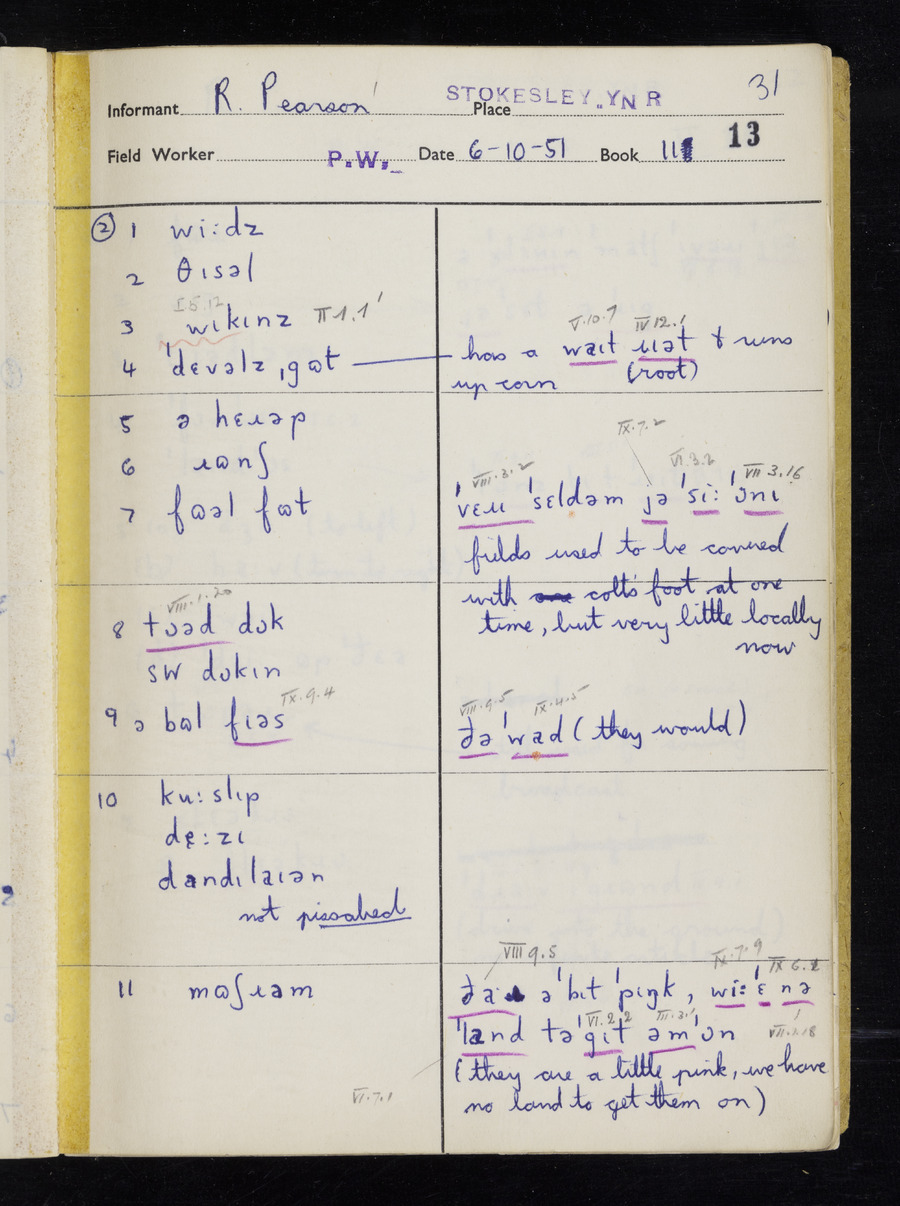 31
Informant R. Pearson Place STOKESLEY. YNR
Field Worker P.W. Date 6-10-51 Book 11 13
② 1 wiːdz
2 θɪsəl
I 5.12
3 wɪkɪnz II 1.1
4 ˈdɛvəlz ˌgɷt
V.10.7 IV 12.1
has a waɪt ɹɪət & runs
up corn (root)
5 ə hɛɹəp
6 ɹɷnʃ
7 fɷəl fɷt
IX.7.2
VIII.3.2 VI.3.2 VII 3.16
ˈvɛɹɪ ˈsɛldəm jə ˈsiː ˈɔnɪ
fields used to be covered
with colt's foot at one
time, but very little locally
now
VIII.1.20
8 tʊəd dɔk
sw dɔkɪn
IX.9.4
9 ə bɷl fɪəs
VIII.9.5 IX.4.5
ðə ˈwad (they would)
10 kuːslɪp
dɛːzɪ
dandɪlaɪən
not pissabed
11 mɷʃɹəm
VIII 9.5 IX.7.9 IX 6.2
ða ə ˈbɪt ˈpɪŋk, wiː ˈɛ nə
VI.2.2 III.3.1 VII.2.18
ˈland tə ˈgɪt əm ˈɔn
(they are a little pink, we have
no land to get them on)
VI.7.1